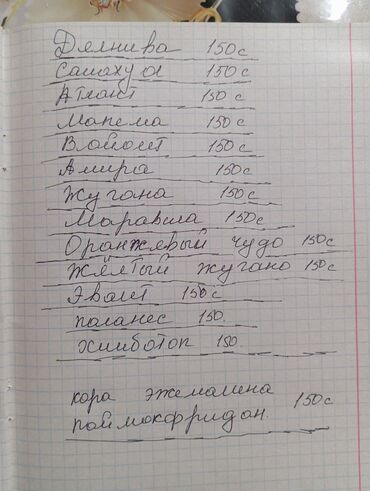 Делнива 150с
Самахуа 150с
Атлант 150с
Мапема 150с
Вайолет 150с
Амира 150с
Жугана 150с
Маравила 150с
Оранжявый чудо 150с
Жёлтый жугано 150с
Эвалт 150с
паланес 150.
химботоп 150.
кора эжемалина 150с
паймокфридан.